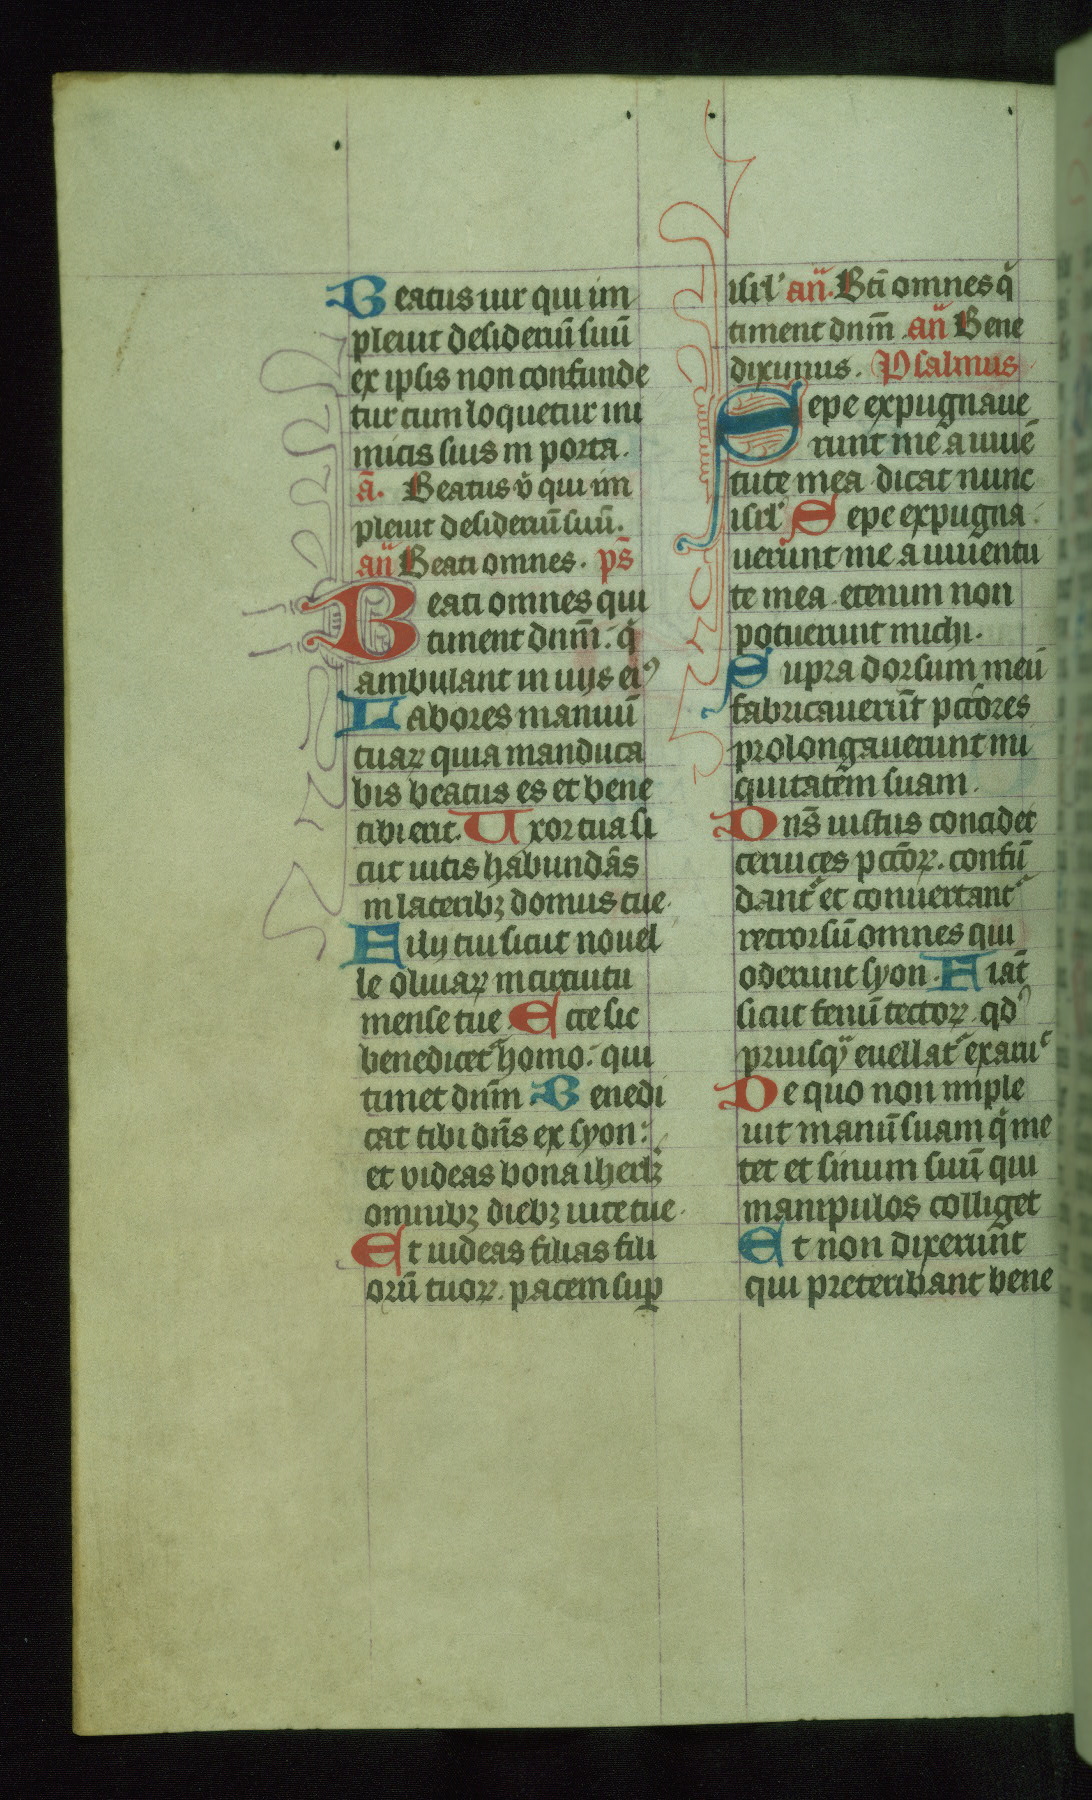 Beatus uir qui im
pleuit desideriū suū
ex ipsis non confunde
tur cum loquetur ini
micis suis in porta.
a᷃. Beatus v̉ qui im
pleuit desideriū suū.
an̄ Beati omnes. ps̄
Beati omnes qui
timent dnm̄: q̉
ambulant in uijs eiꝰ
Labores manuū
tuaꝝ quia manduca
bis beatus es et bene
tibi erit. Uxor tua si
cut uitis habundās
in lateribꝫ domus tue.
Filij tui sicut nouel
le oliuaꝝ in circuitu
mense tue. Ecce sic
benedicet᷑ homo: qui
timet dnm̄ Benedi
cat tibi dn̄s ex syon:
et videas bona iherlꝫ
omnibꝫ diebꝫ uite tue.
Et uideas filias fili
orū tuoꝝ. pacem suꝑ
isrl’ an̄. Bt̄i omnes q̉
timent dnm̄. an̄ Bene
diximus. Psalmus
Sepe expugnaue
runt me a iuuē
tute mea dicat nunc
isrl’ Sepe expugna
uerunt me a iuuentu
te mea. etenim non
potuerunt michi.
Supra dorsum meū
fabricauerūt pctōres
prolongauerunt ini
quitatem suam.
Dns̄ iustus concidet
ceruices pctōꝝ. confū
dant᷑ et conuertant᷑
retrorsū omnes qui
oderunt syon. Fiāt
sicut fenū tectoꝝ. qdꝰ
priusq̄ euellat᷑ exaruᵗ
De quo non imple
uit manū suam q̉ me
tet et sinum suū qui
manipulos colliget
Et non dixerūnt
qui preteribant bene